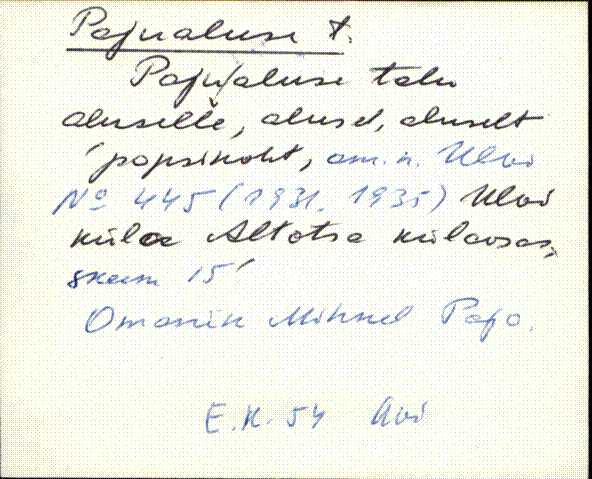 Pajualuse t.
Paju/aluse talu
alusele, alusel, aluselt
'popsikoht, om. n. Ulvi
No 445 (1931. 1935) Ulvi
küla Altotsa külaosas,
15'
Omanik Mihkel Pajo.
E.K. 54